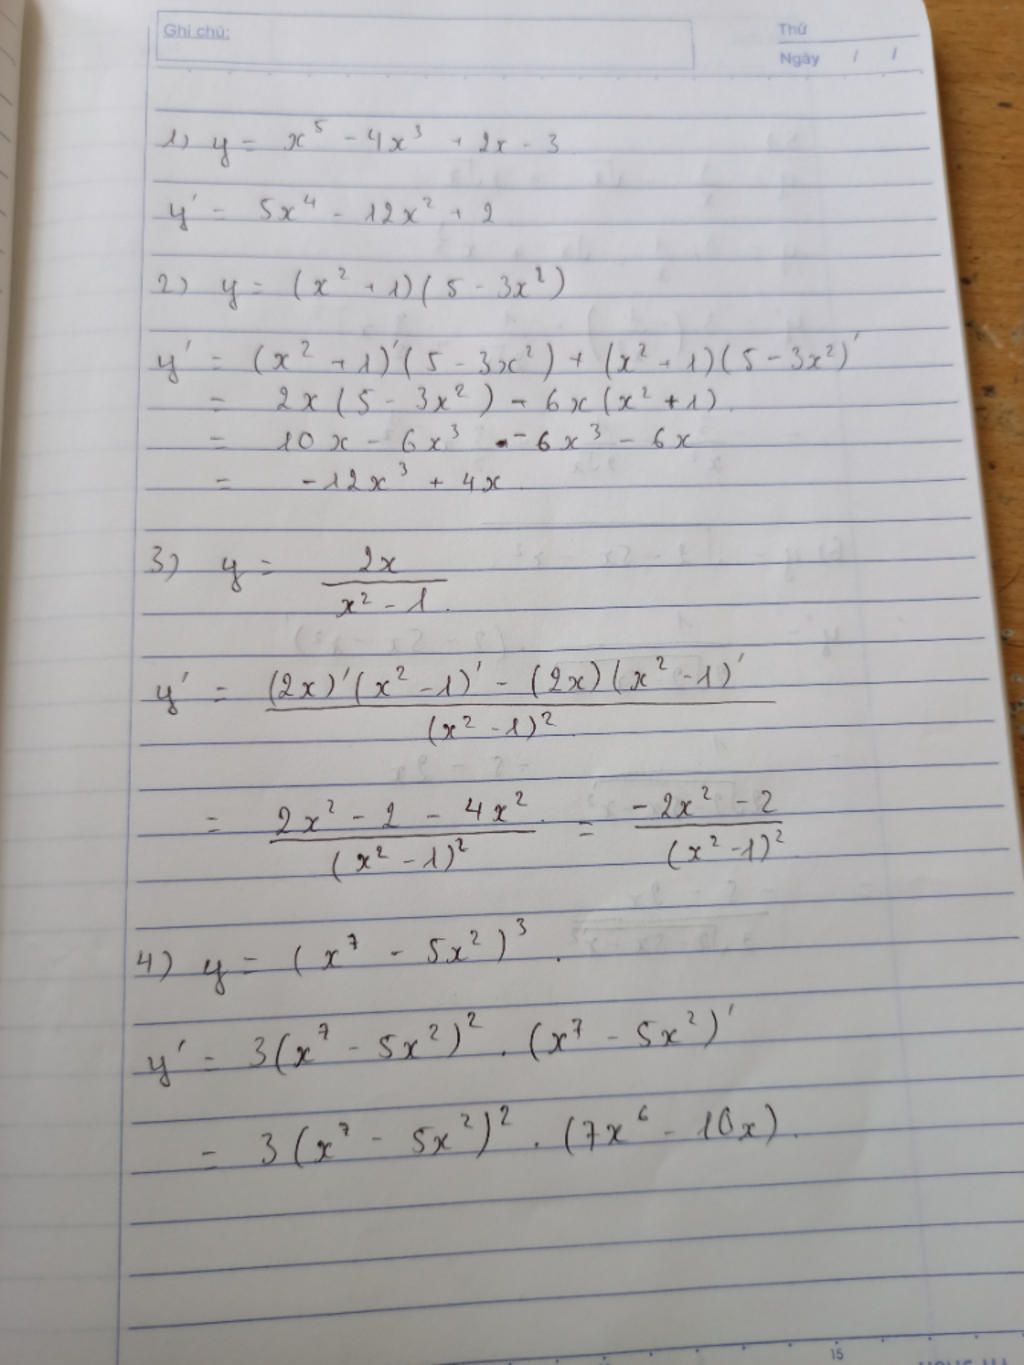 Ghi chú:
Thứ
Ngày / /
1) y = x⁵ - 4x³ + 2x - 3
y' = 5x⁴ - 12x² + 2
2) y = (x² + 1)(5 - 3x²)
y' = (x² + 1)'(5 - 3x²) + (x² + 1)(5 - 3x²)'
= 2x(5 - 3x²) - 6x(x² + 1)
= 10x - 6x³ - 6x³ - 6x
= -12x³ + 4x
3) y = 2x / (x² - 1)
y' = ((2x)'(x² - 1)' - (2x)(x² - 1)') / (x² - 1)²
= (2x² - 2 - 4x²) / (x² - 1)² = (-2x² - 2) / (x² - 1)²
4) y = (x⁷ - 5x²)³.
y' = 3(x⁷ - 5x²)² . (x⁷ - 5x²)'
= 3(x⁷ - 5x²)² . (7x⁶ - 10x).
15